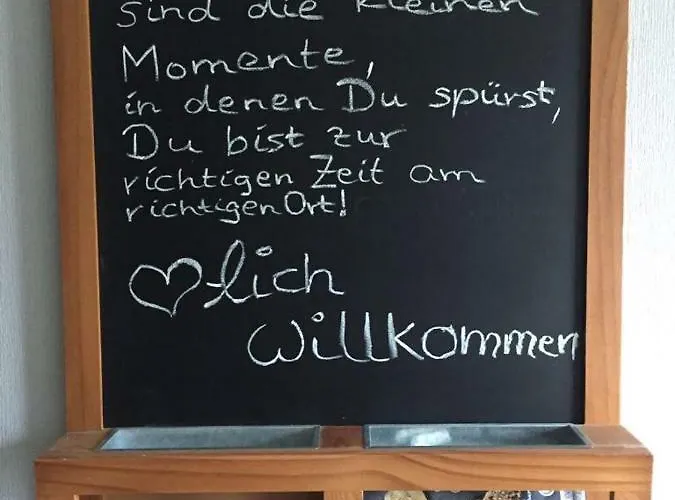 sind die kleinen
Momente,
in denen Du spürst,
Du bist zur
richtigen Zeit am
richtigen Ort!
♡lich
willkommen